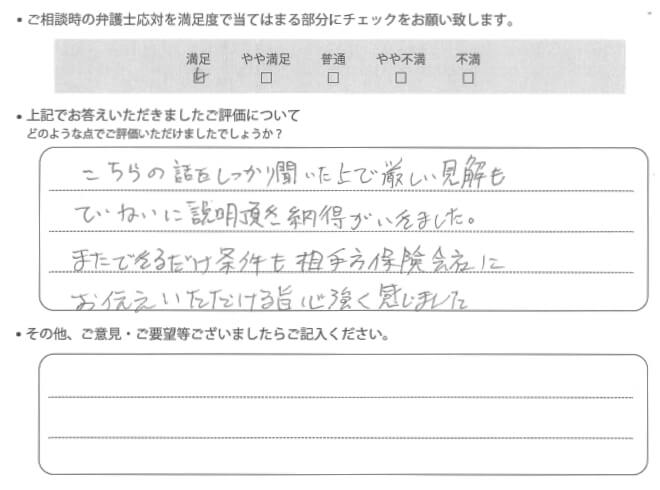 • ご相談時の弁護士応対を満足度で当てはまる部分にチェックをお願い致します。
満足 やや満足 普通 やや不満 不満
☑ □ □ □ □
• 上記でお答えいただきましたご評価について
どのような点でご評価いただけましたでしょうか？
こちらの話をしっかり聞いた上で厳しい見解も
ていねいに説明頂き納得がいきました。
またできるだけ条件も相手方保険会社に
お伝えいただける旨心強く感じました
• その他、ご意見・ご要望等ございましたらご記入ください。